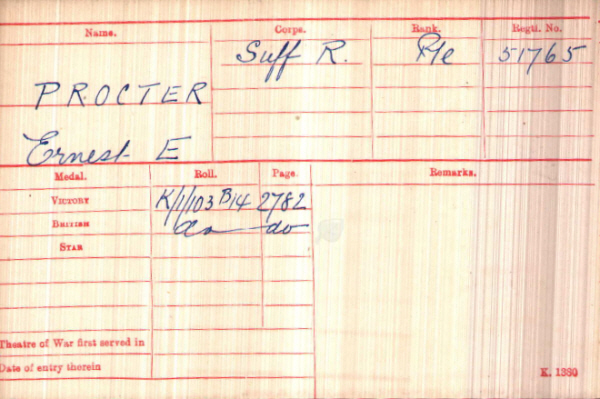 Name. Corps. Rank. Regtl. No.
Suff R. Pte 51765
PROCTER
Ernest E
Medal. Roll. Page. Remarks.
VICTORY K/1/103 B14 2782
BRITISH do do
STAR
Theatre of War first served in
Date of entry therein
K. 1380